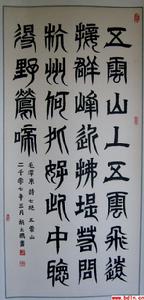 五雲山上五雲飛遠
接群峰近拂堤若問
杭州何処好此中聽
得野鶯啼
毛澤東詩七絕五雲山
二千零七年三月
www.bdln.cn